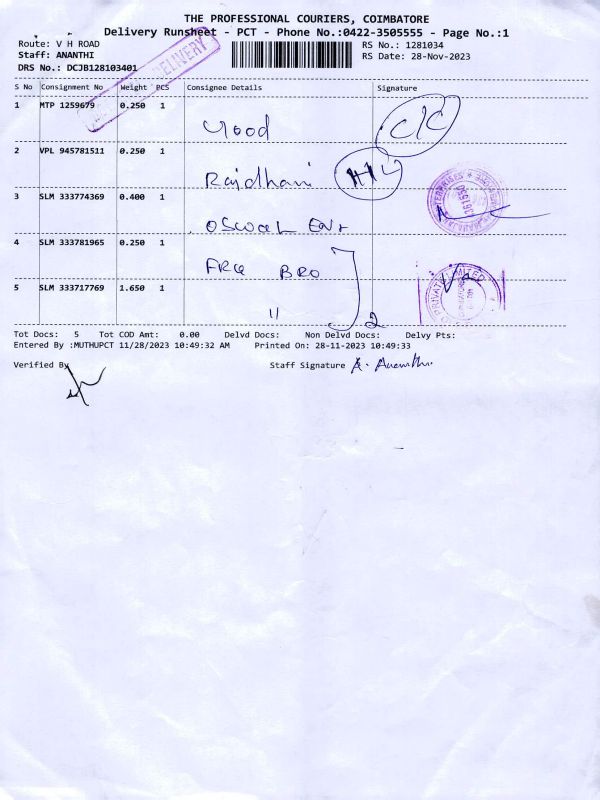 THE PROFESSIONAL COURIERS, COIMBATORE
Delivery Runsheet - PCT - Phone No.:0422-3505555 - Page No.:1
Route: V H ROAD
RS No.: 1281034
Staff: ANANTHI
RS Date: 28-Nov-2023
DRS No.: DCJB128103401
DELIVERY
S No Consignment No Weight PCS Consignee Details Signature
1 MTP 1259679 0.250 1
Good
2 VPL 945781511 0.250 1
Rajdhani
3 SLM 333774369 0.400 1
OSwaL Ent
4 SLM 333781965 0.250 1
FRG BRO
5 SLM 333717769 1.650 1
" 2
Tot Docs: 5 Tot COD Amt: 0.00 Delvd Docs: Non Delvd Docs: Delvy Pts:
Entered By :MUTHUPCT 11/28/2023 10:49:32 AM Printed On: 28-11-2023 10:49:33
Verified By
Staff Signature A. Ananthi.